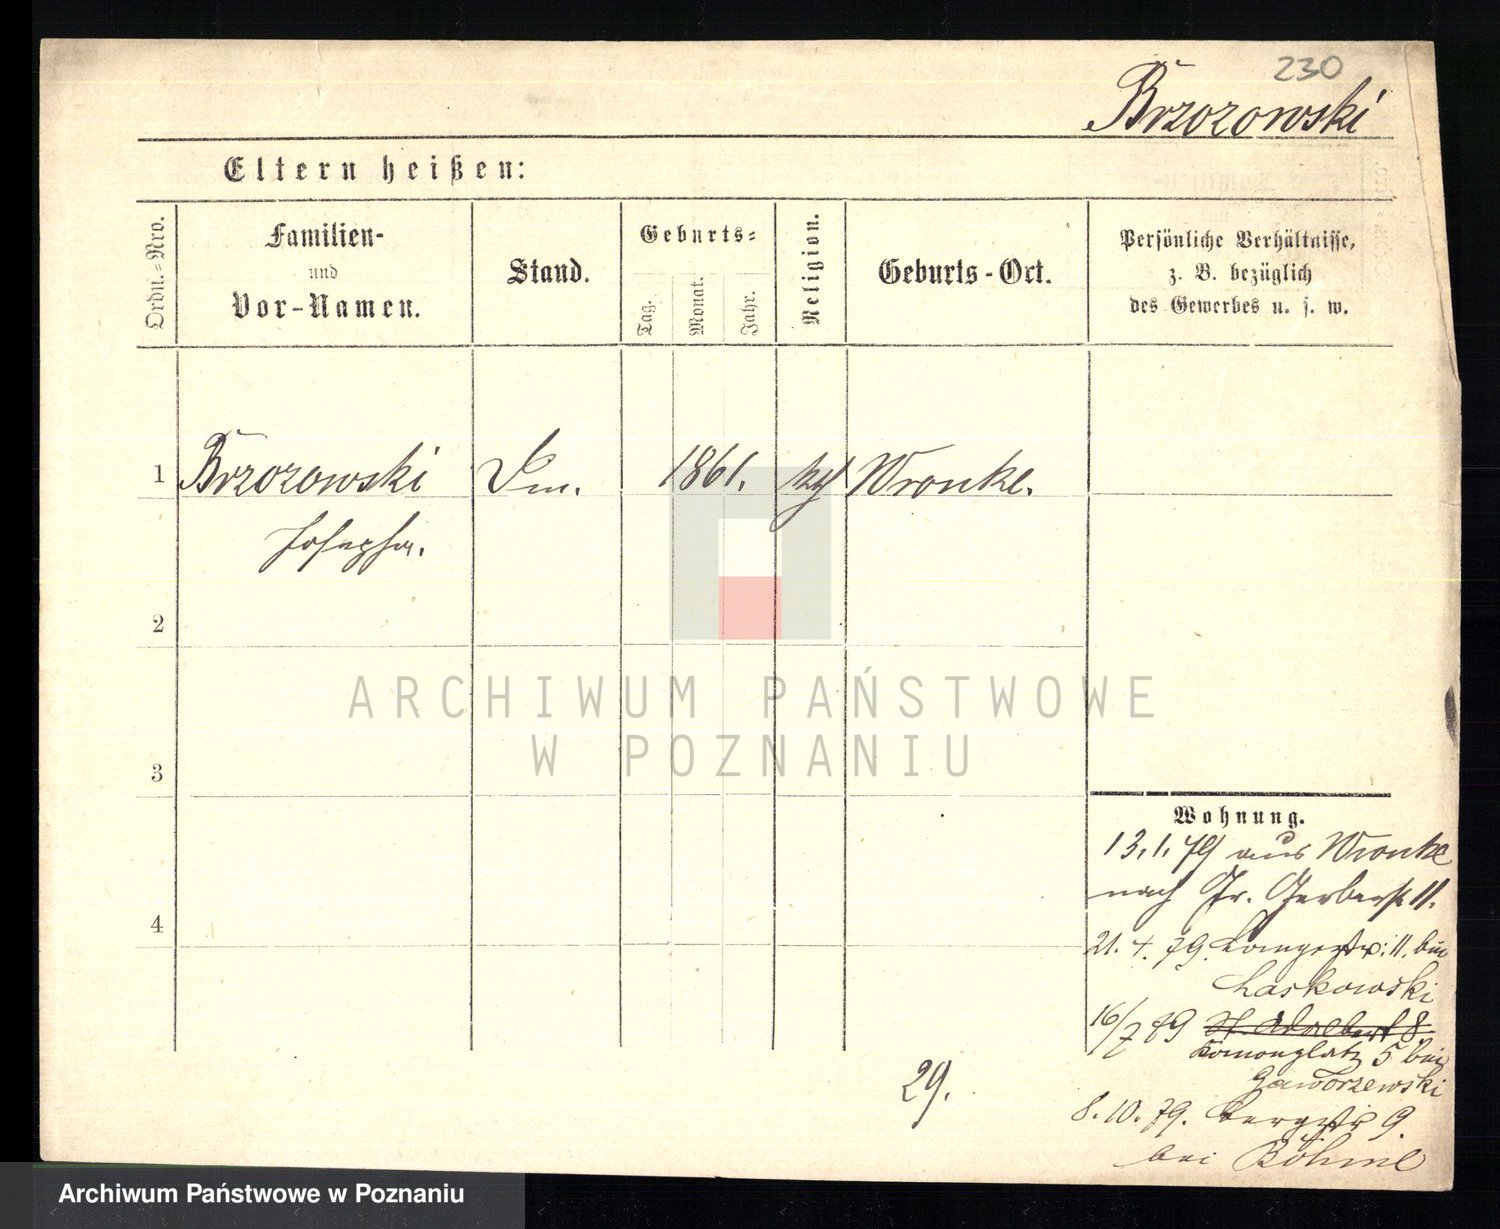 230
Brzozowski
Eltern heißen:
Ordn.=Nro.
Familien-
und
Vor-Namen.
Stand.
Geburts=
Tag.
Monat.
Jahr.
Religion.
Geburts-Ort.
Persönliche Verhältnisse,
z. B. bezüglich
des Gewerbes u. s. w.
1 Brzozowski 1861. kath Wronke.
Josepha.
2
3
4
ARCHIWUM PAŃSTWOWE
W POZNANIU
Wohnung.
13.1.79 aus Wronke
nach Gr. Gerberstr 11.
21. 4. 79. Langestr: 11. bei
Laskowski
16/7 79 St. Adalbert 8
Kanonenplatz 5 bei
Gaworzewski
8. 10. 79. Bergstr 9.
bei Böhme
29.
Archiwum Państwowe w Poznaniu